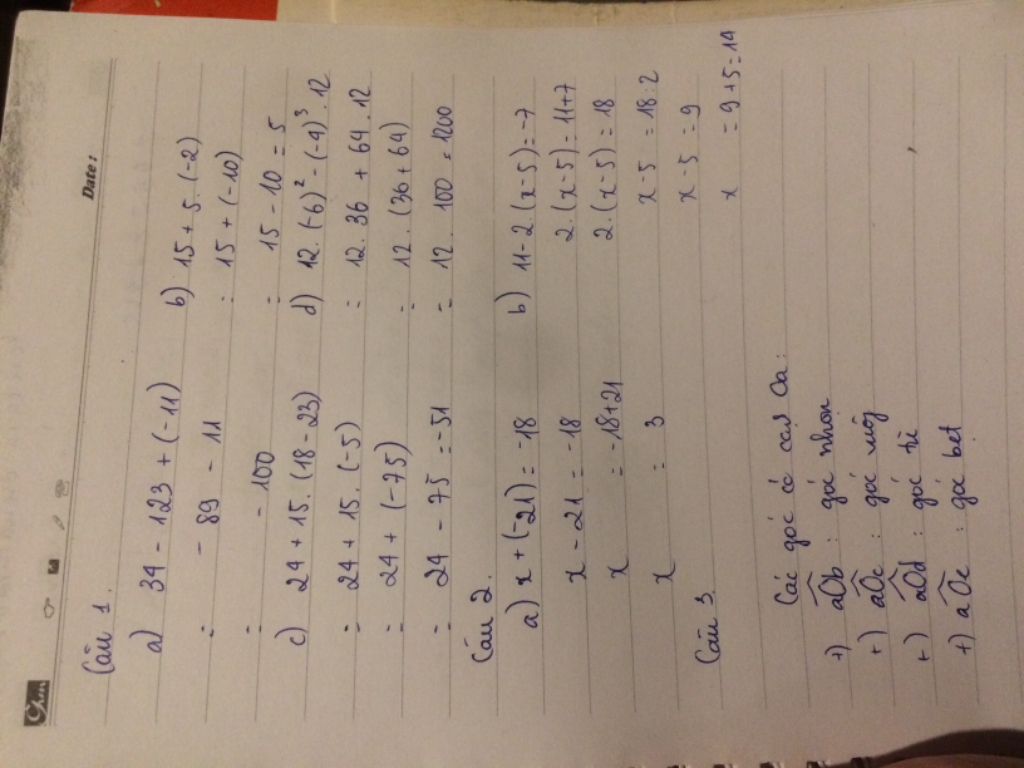 Date:
Câu 1.
a) 34 - 123 + (-11)    b) 15 + 5. (-2)
= - 89 - 11    = 15 + (-10)
= - 100    = 15 - 10 = 5
c) 24 + 15. (18 - 23)    d) 12. (-6)² - (-4)³. 12
= 24 + 15. (-5)    = 12. 36 + 64. 12
= 24 + (-75)    = 12. (36 + 64)
= 24 - 75 = -51    = 12. 100 = 1200
Câu 2.
a) x + (-21) = -18    b) 11 - 2. (x - 5) = -7
x - 21 = -18    2. (x - 5) = 11 + 7
x = -18 + 21    2. (x - 5) = 18
x = 3    x - 5 = 18 : 2
x - 5 = 9
Câu 3    x = 9 + 5 = 14
Các góc có cạnh Oa:
+) aOb : góc nhọn
+) aOc : góc vuông
+) aOd : góc tù
+) aOe : góc bẹt